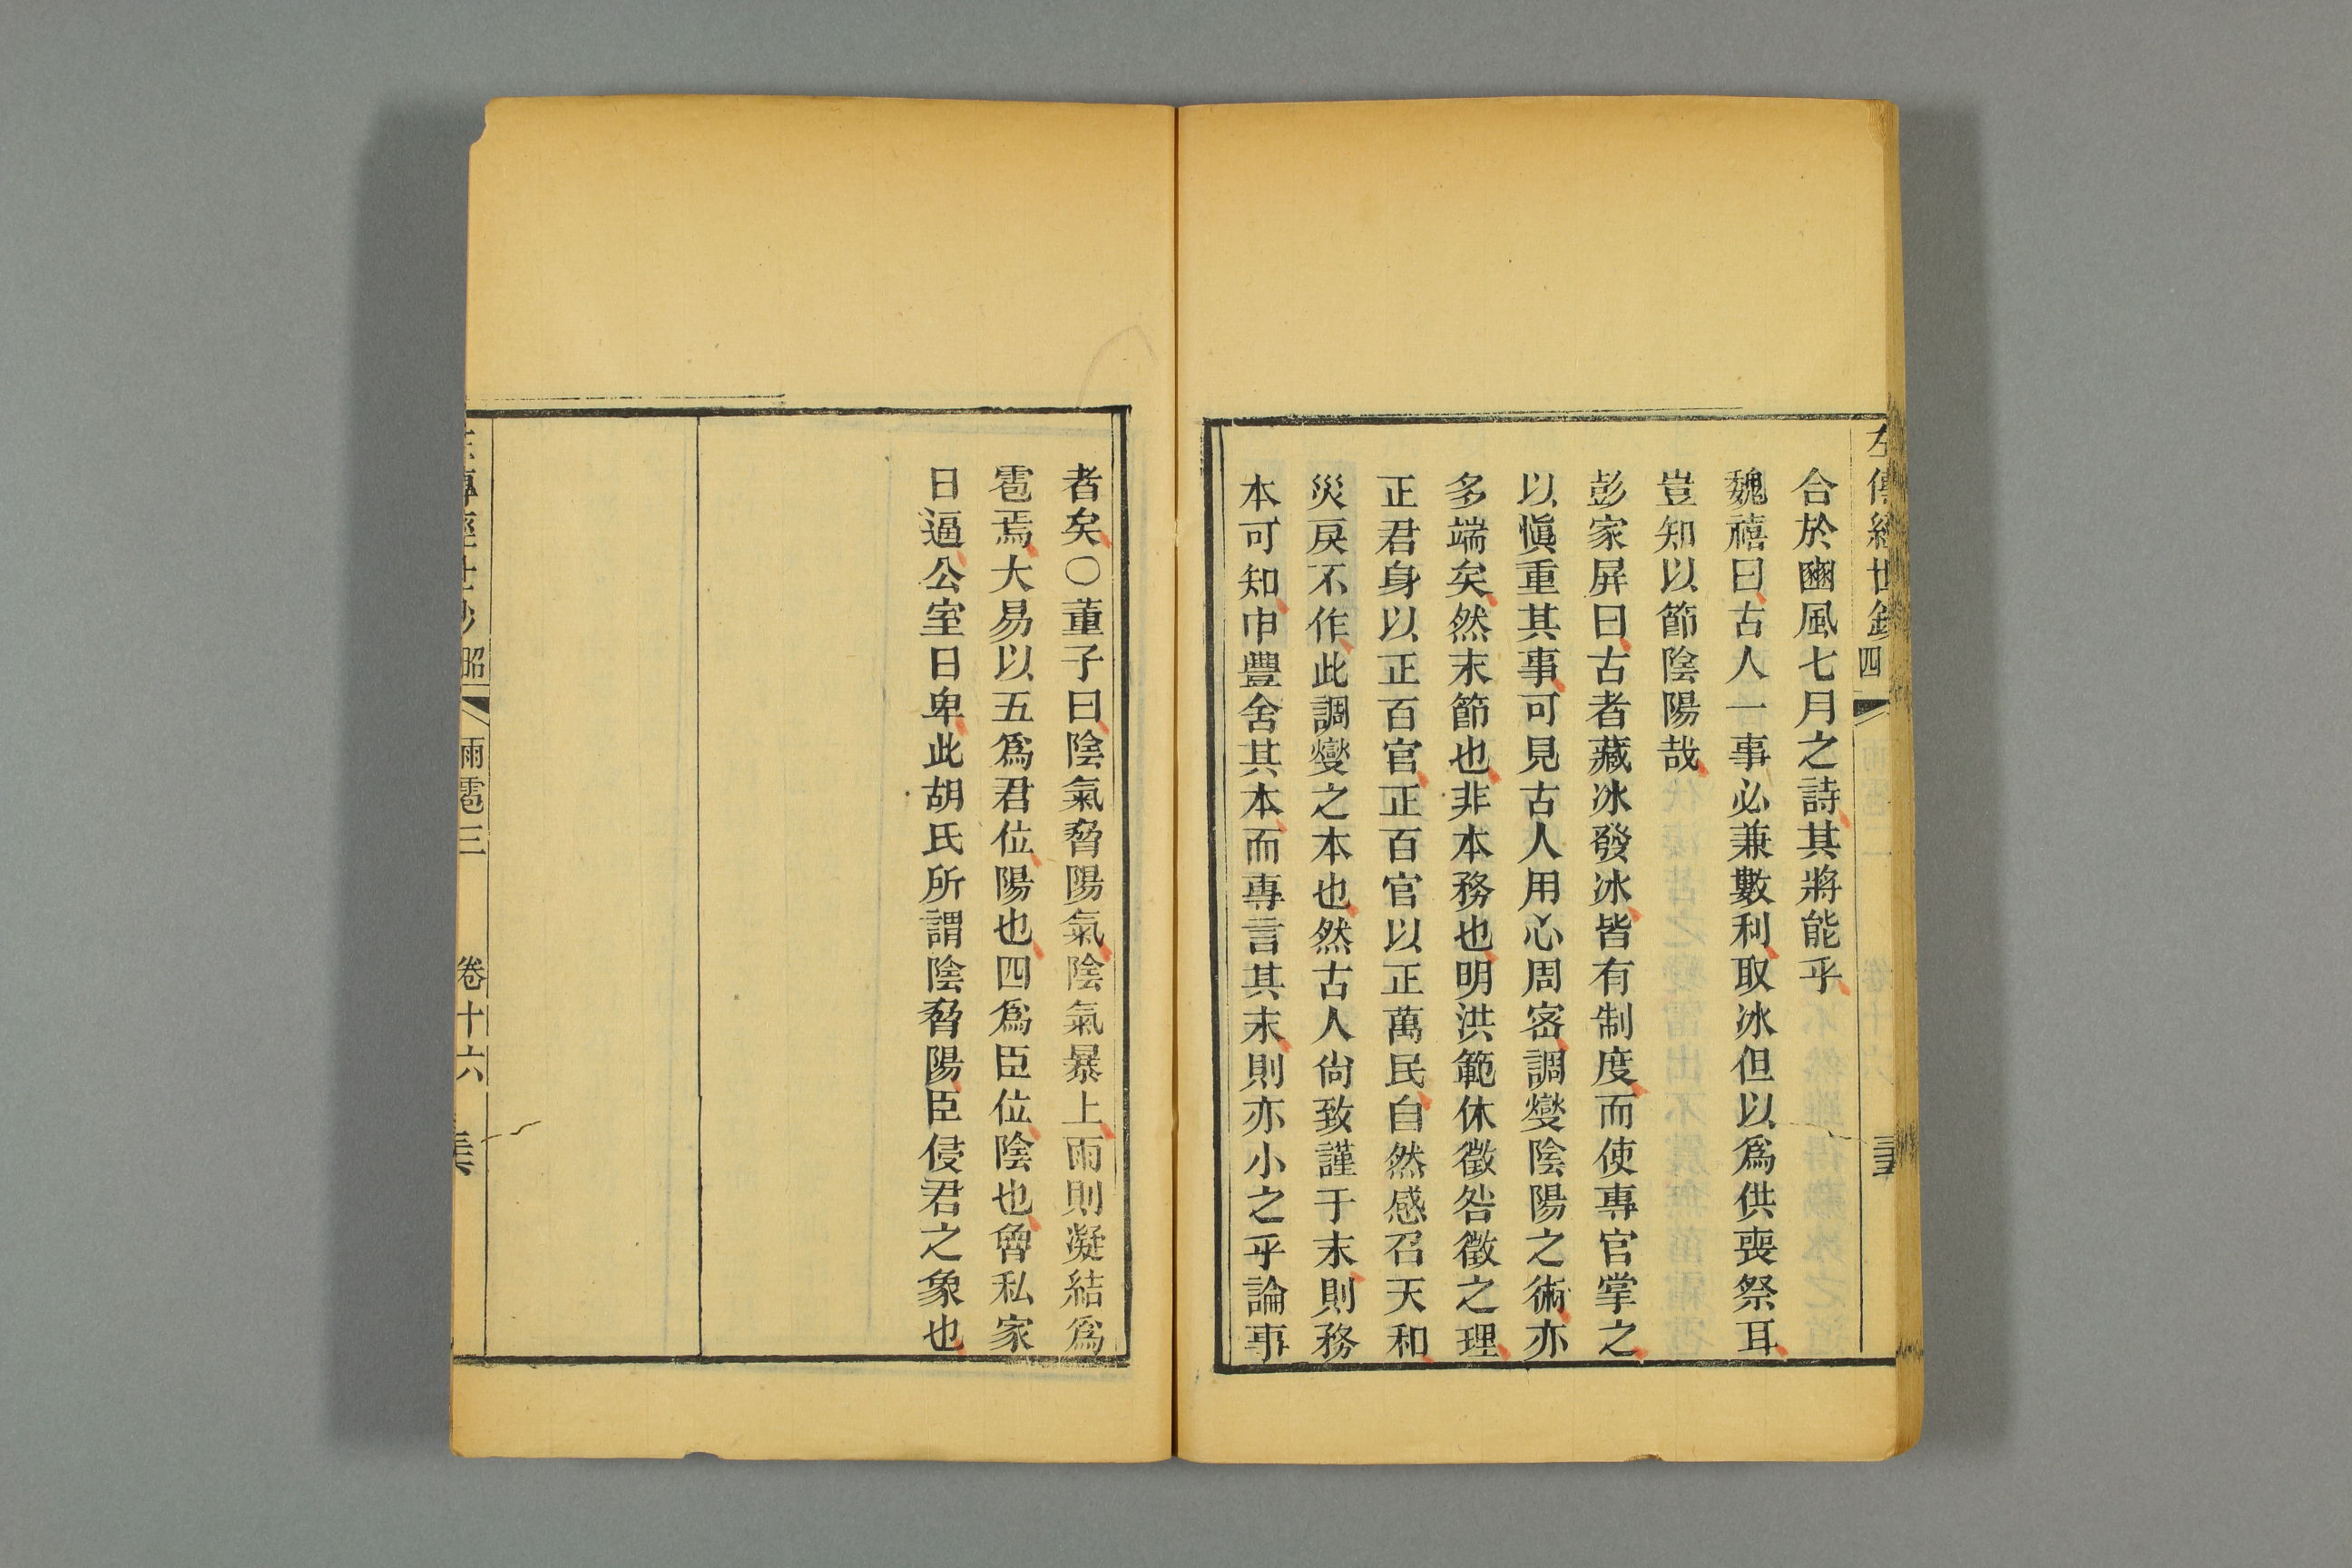 左傳經世鈔
四
合於豳風七月之詩其將能乎
魏禧曰古人一事必兼數利取冰但以爲供喪祭耳
豈知以節陰陽哉
彭家屏曰古者藏冰發冰皆有制度而使專官掌之
以愼重其事可見古人用心周宻調燮陰陽之術亦
多端矣然末節也非本務也明洪範休徵咎徵之理
正君身以正百官正百官以正萬民自然感召天和
災戾不作此調燮之本也然古人尙致謹于末則務
本可知申豐舍其本而專言其末則亦小之乎論事
者矣〇董子曰陰氣脅陽氣陰氣暴上雨則凝結爲
雹焉大易以五爲君位陽也四爲臣位陰也魯私家
日逼公室日卑此胡氏所謂陰脅陽臣侵君之象也
左傳經世鈔 昭
雨雹三
卷十六